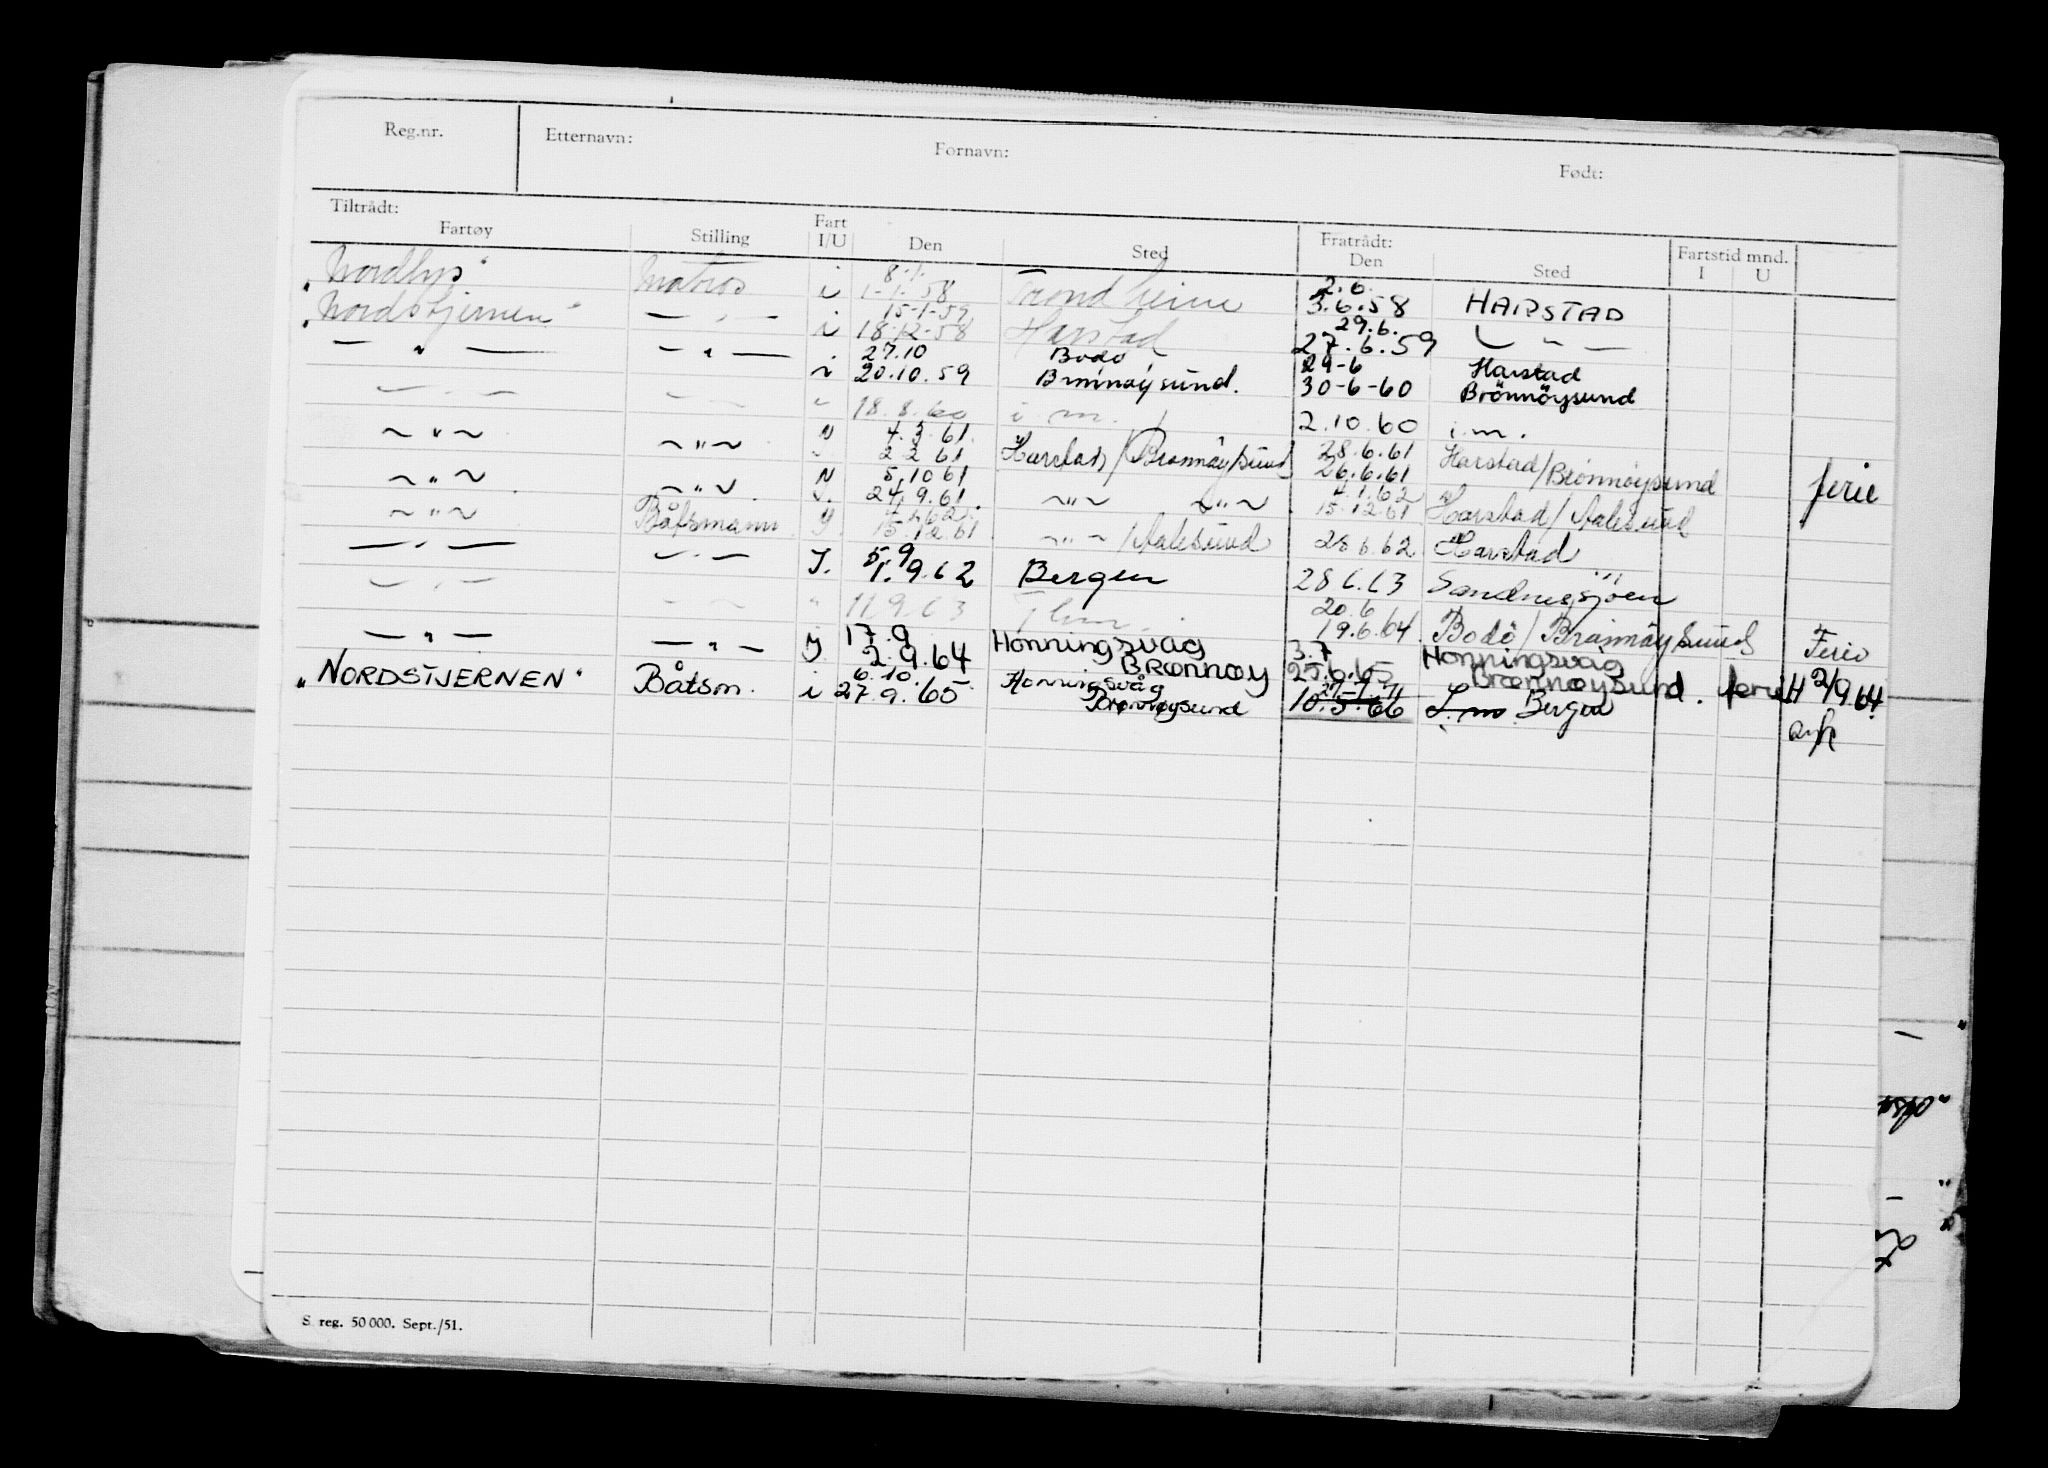 Reg.nr. Etternavn: Fornavn: Født:
Tiltrådt: Fratrådt:
Fartøy Stilling Fart I/U Den Sted Den Sted Fartstid mnd. I U
8.1. 2.6.
"Nordlys" Matros i 1-1-58 Trondheim 3.6.58 HARSTAD
15-1-59 29.6.
"Nordstjernen" — „ — i 18-12-58 Harstad 27.6.59 — „ —
27.10 Bodö 29-6 Harstad
— „ — — „ — 20.10.59 Brönnöysund. 30-6-60 Brönnöysund
— „ — — „ — 18.8.60 i.m. 2.10.60 i.m.
4.3.61 28.6.61
— „ — — „ — 2 2 61 Harstad/Brönnöysund 26.6.61 Harstad/Brönnöysund
5.10 61 4.1.62
— „ — — „ — 24.9.61. — „ — — „ — 15.12.61 Harstad/Aalesund ferie
4.1.62
— „ — Båtsmann Y. 15.12.61 — „ — /Aalesund 28 6.62 Harstad
5.9
— „ — — „ — I. 1.9.62 Bergen 28 6.63 Sandnessjöen
20.6
— „ — — „ — 11.9.63 Thm. 19.6.64. Bodö/Brönnöysund Ferie
17.9 Honningsvåg 3.7 Honningsvåg
— „ — — „ — 2.9.64 BRÖNNÖY 25.6.65 Brönnöysund. ferie H 2/9.64
6.10. Honningsvåg
"NORDSTJERNEN" Båtsm. i 27.9.65 Brønnøysund 10.5.66 I.m. Bergen
S. reg. 50 000. Sept./51.